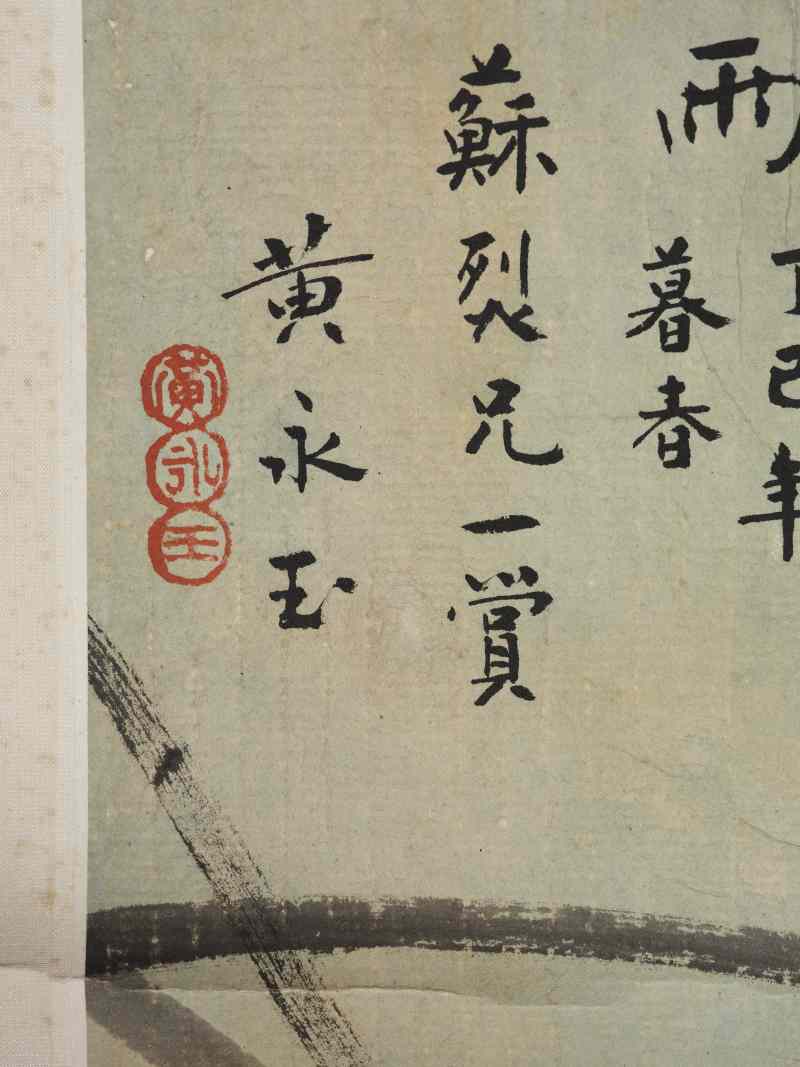 丁巳年
雨
暮春
蘇烈兄一賞
黄永玉
黄永玉